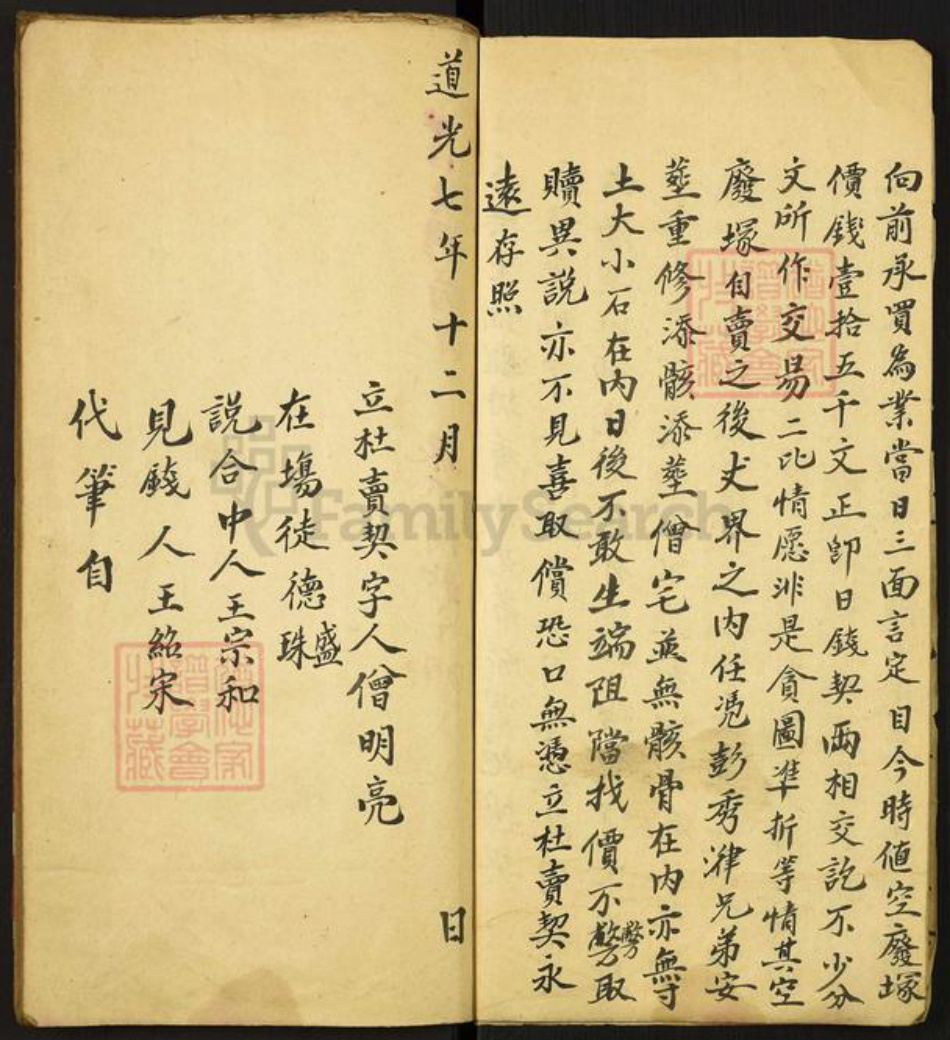 向前承買為業當日三面言定目今時值空廢塚
價錢壹拾五千文正即日錢契兩相交訖不少分
文所作交易二比情愿非是貪圖準折等情其空
廢塚自賣之後丈界之內任憑彭秀津兄弟安
塟重修添骸添塟僧宅並無骸骨在內亦無寸
土大小石在內日後不敢生端阻擋找價不取
贖異說亦不見喜取償恐口無憑立杜賣契永
遠存照
道光七年十二月 日
立杜賣契字人僧明亮
在場徒德盛珠
說合中人王宗和
見錢人王紹宋
代筆自
FamilySearch